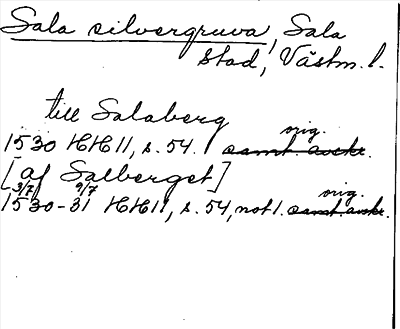 Sala silvergruva, Sala
stad, Västm. l.
till Salaberg
orig.
1530 HH 11, s. 54. samt. avskr.
[af Salberget]
3/7 9/7
orig.
1530-31 HH 11, s. 54, not 1. samt. avskr.